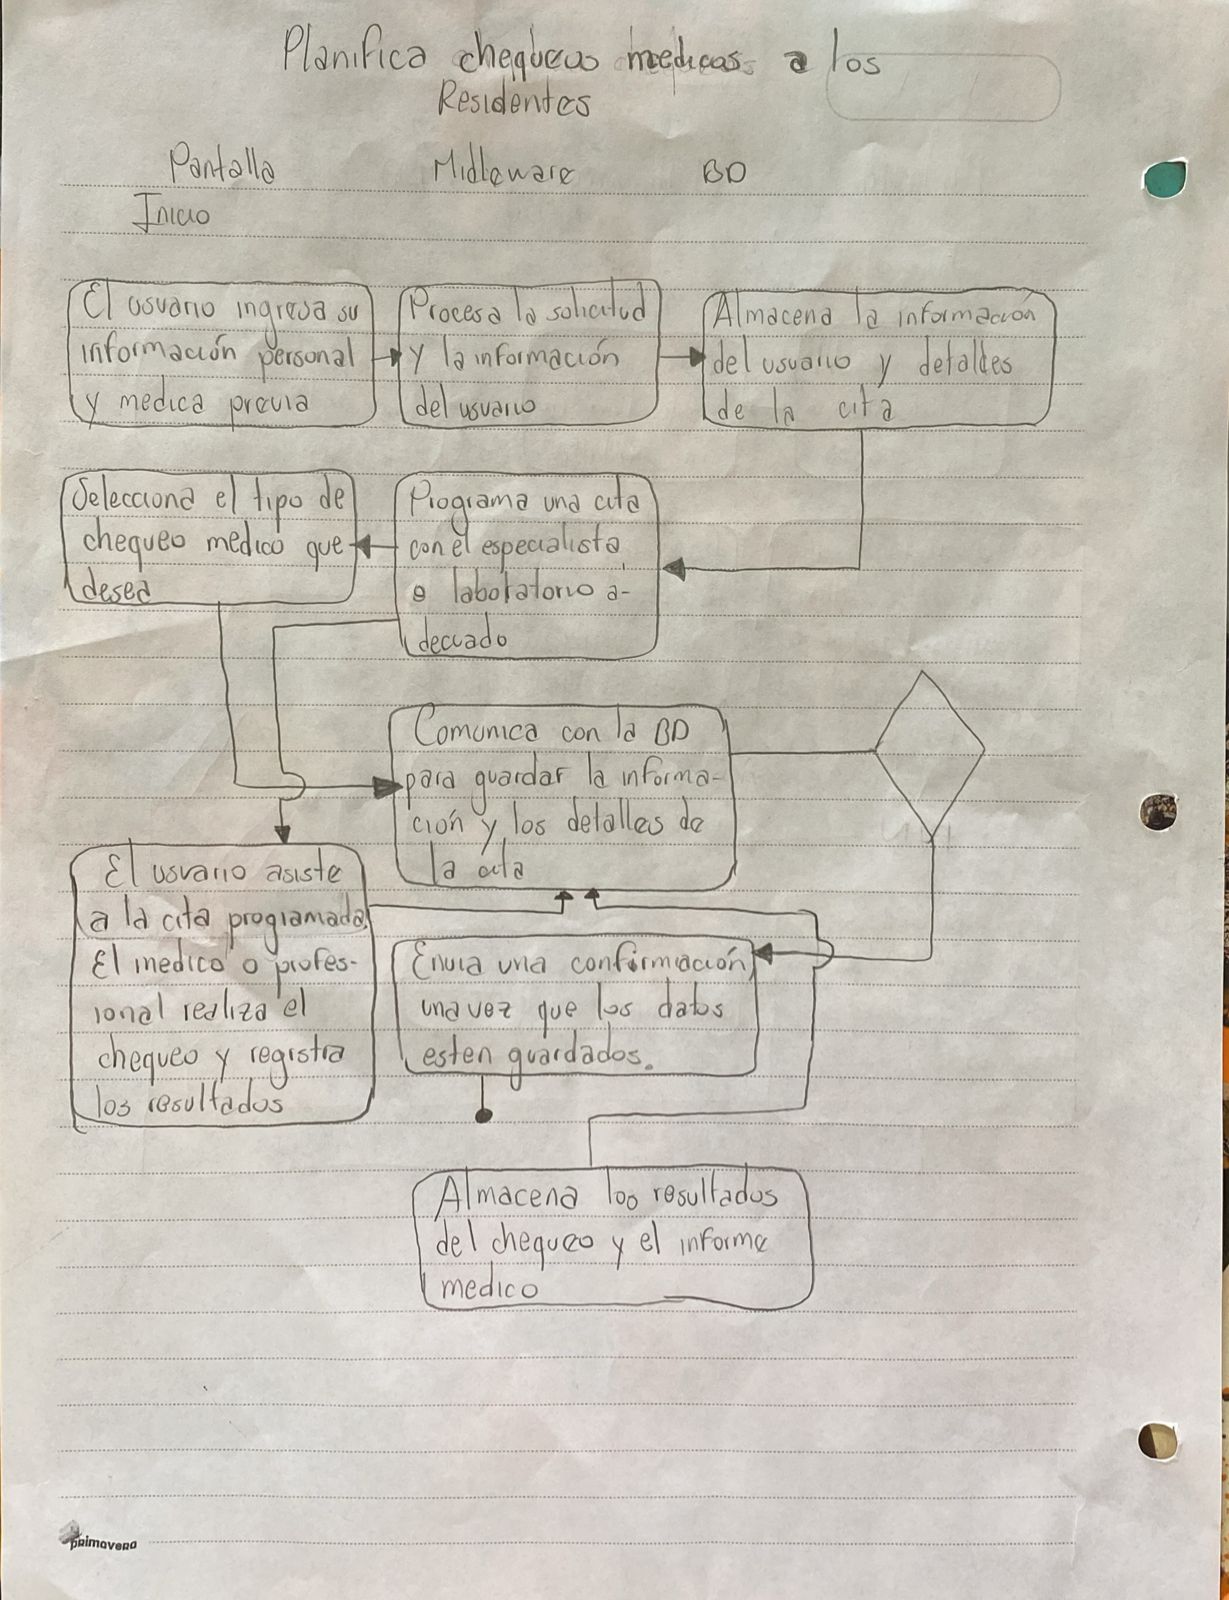 Planifica chequeos medicos a los
Residentes
Pantalla
Midleware
BD
Inicio
El usuario ingresa su
información personal
y medica previa
Procesa la solicitud
y la información
del usuario
Almacena la información
del usuario y detalles
de la cita
Selecciona el tipo de
chequeo medico que
desea
Programa una cita
con el especialista
o laboratorio a-
decuado
Comunica con la BD
para guardar la informa-
ción y los detalles de
la cita
El usuario asiste
a la cita programada.
El medico o profes-
ional realiza el
chequeo y registra
los resultados
Envia una confirmación
una vez que los datos
esten guardados.
Almacena los resultados
del chequeo y el informe
medico
primavera